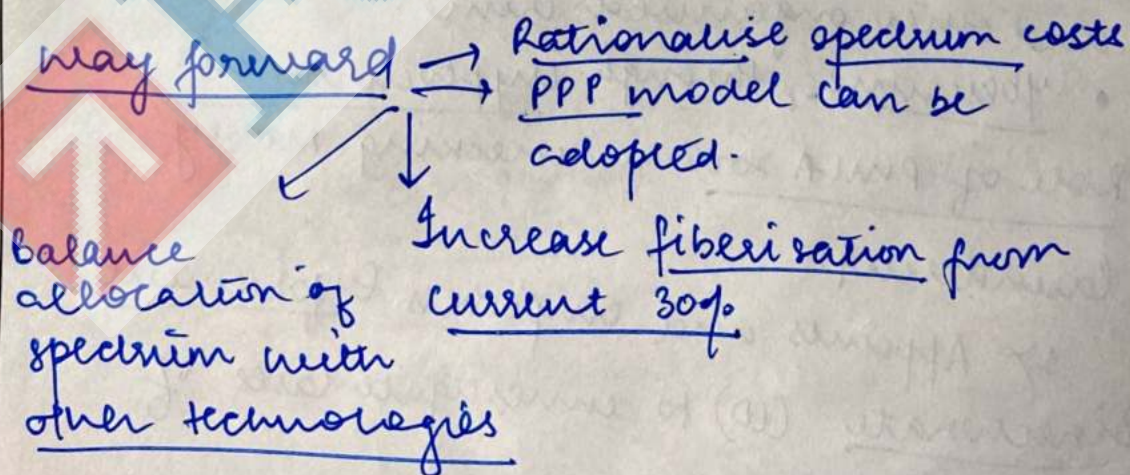 way forward → Rationalise spectrum costs
→ PPP model can be
adopted.
Increase fiberisation from
current 30%
Balance
allocation of
spectrum with
other technologies